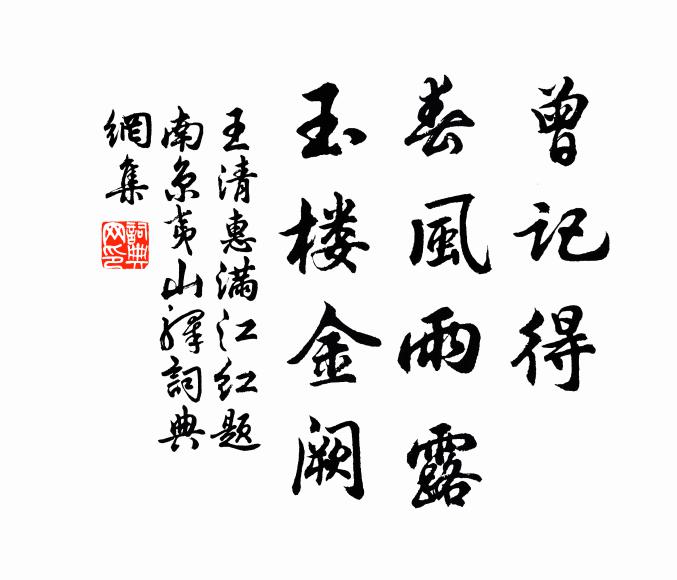 曾記得
春風雨露
玉楼金阙
王清惠满江红题
南京夷山驿詞典
網集
詞典
网印